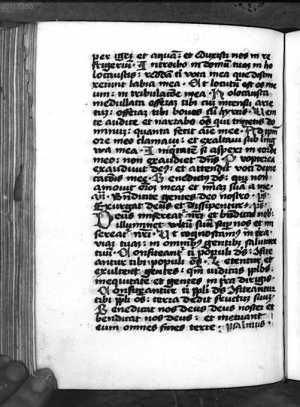 per igne et aquam: et eduxisti nos in re
frigeriu. Introibo in domu tua in ho
locaustis: redda ti vota mea que distin
xerunt labia mea. Et locutu est os me
um: in tribulatione mea. Holocausta
medullata offeram tibi cu incensu arie
tum: offeram tibi boues cu hyrcis. Ve
nite audite et narrabo oēs qui timetis do
minum: quanta fecit aīe mee. Ad ipm
ore meo clamaui: et exaltaui sub ling
wa mea. Iniquitatē si aspexi in corde
meo: non exaudiet dn̄s. Propterea
exaudiuit ds: et attendit voci depre
catōis mee. Benedictus ds: qui non
amouit mea et sua a me
Benedicite gentes deo nostro. ps
Exurgat deus et dissipentur. ps
Deus misereatur nr̄i et benedicat nob
illuminet vultū suū sup nos et mi
sereatur nr̄i. Ut cognoscam in tra
viā tuam: in omnibus gentibus salutare
tuū. Confiteantur ti populi ds: ofite
antur tibi populi oēs. Letentur et
exultent gentes: qm iudicas pplōs
in equitate et gentes in tra dirigis.
Confiteantur ti ppli ds: ofiteantur
tibi ppli oēs: terra dedit fructū suū.
Benedicat nos deus deus noster et
benedicat nos deus: et metuant
eum omnes fines terre. Psalmus.